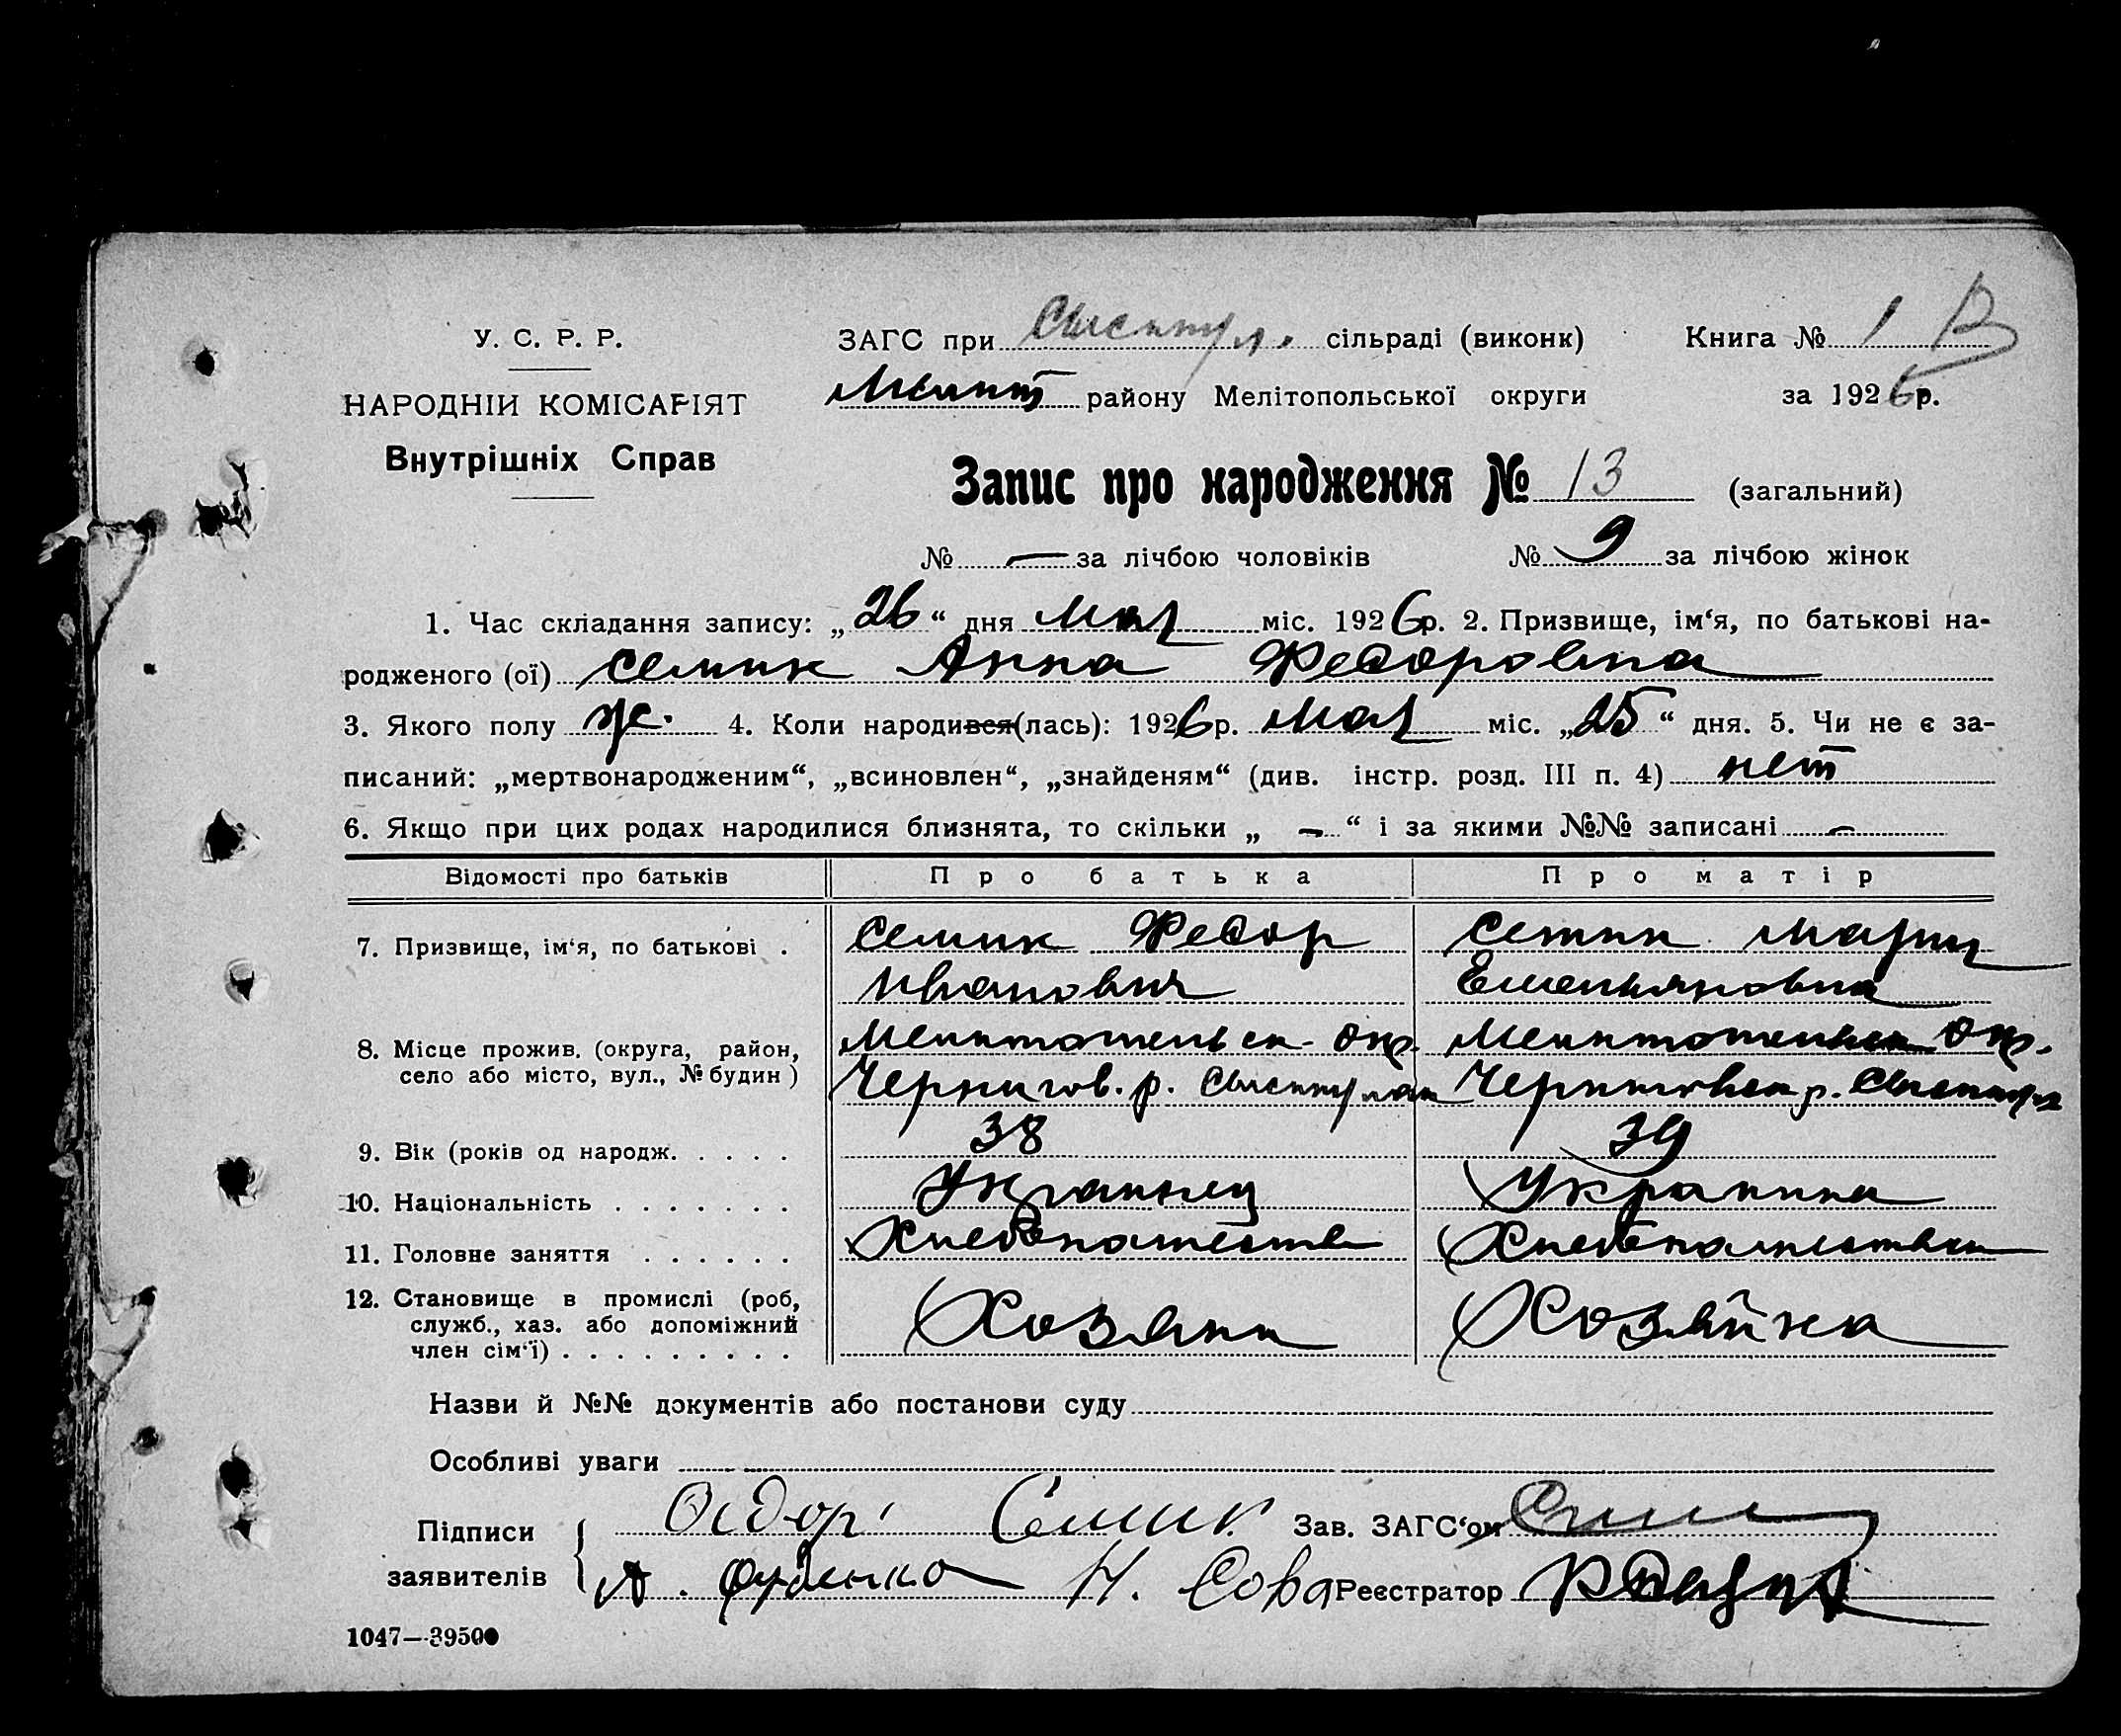 У. С. Р. Р.
НАРОДНІЙ КОМІСАРІЯТ
Внутрішніх Справ
ЗАГС при сільраді (виконк) Книга № 1
Мелит району Мелітопольської округи за 1926р.
Запис про народження № 13 (загальний)
№ — за лічбою чоловіків № 9 за лічбою жінок
1. Час складання запису: „26“ дня мая міс. 1926р. 2. Призвище, ім‘я, по батькові на-
родженого (ої) Семик Анна Федоровна
3. Якого полу ж. 4. Коли народився(лась): 1926р. мая міс. „25“ дня. 5. Чи не є за-
писаний: „мертвонародженим“, „всиновлен“, „знайденям“ (див. інстр. розд. III п. 4) нет
6. Якщо при цих родах народилися близнята, то скільки „ — “ і за якими №№ записані —
Відомості про батьків Про батька Про матір
7. Призвище, ім‘я, по батькові . Семик Федор Семик Мария
Иванович Емельяновна
8. Місце прожив. (округа, район, Мелитопольск. окр. Мелитопольск окр.
село або місто, вул., № будин) Чернигов. р. Черниговск р.
9. Вік (років од народж. . . . . 38 39
10. Національність . . . . . . . Украинец Украинка
11. Головне заняття . . . . . . Хлебопашество Хлебопашество
12. Становище в промислі (роб,
служб., хаз. або допоміжний Хозяин Хозяйка
член сім‘ї) . . . . . . . . .
Назви й №№ документів або постанови суду
Особливі уваги
Підписи Федор Семик Зав. ЗАГС‘ом
заявителів Н. Сова Реєстратор
1047—39500